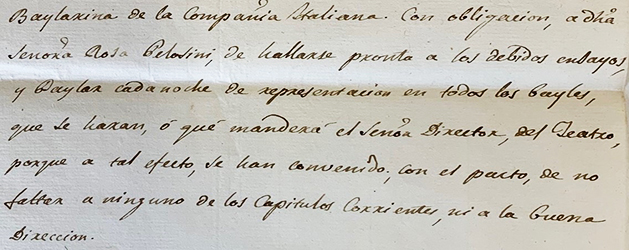 Baylarina de la Compan̄ia Italiana. Con obligacion, a dha
Senora Rosa Pelosini, de hallarse pronta a los debidos ensayos,
y Baylar cada noche de representacion en todos los bayles,
que se haran, ó qué manderá el Senor Director, del Teatro,
porque a tal efecto, se han convenido; con el pacto, de no
faltar a ninguno de los Capitulos Corrientes, ni a la buena
Direccion.